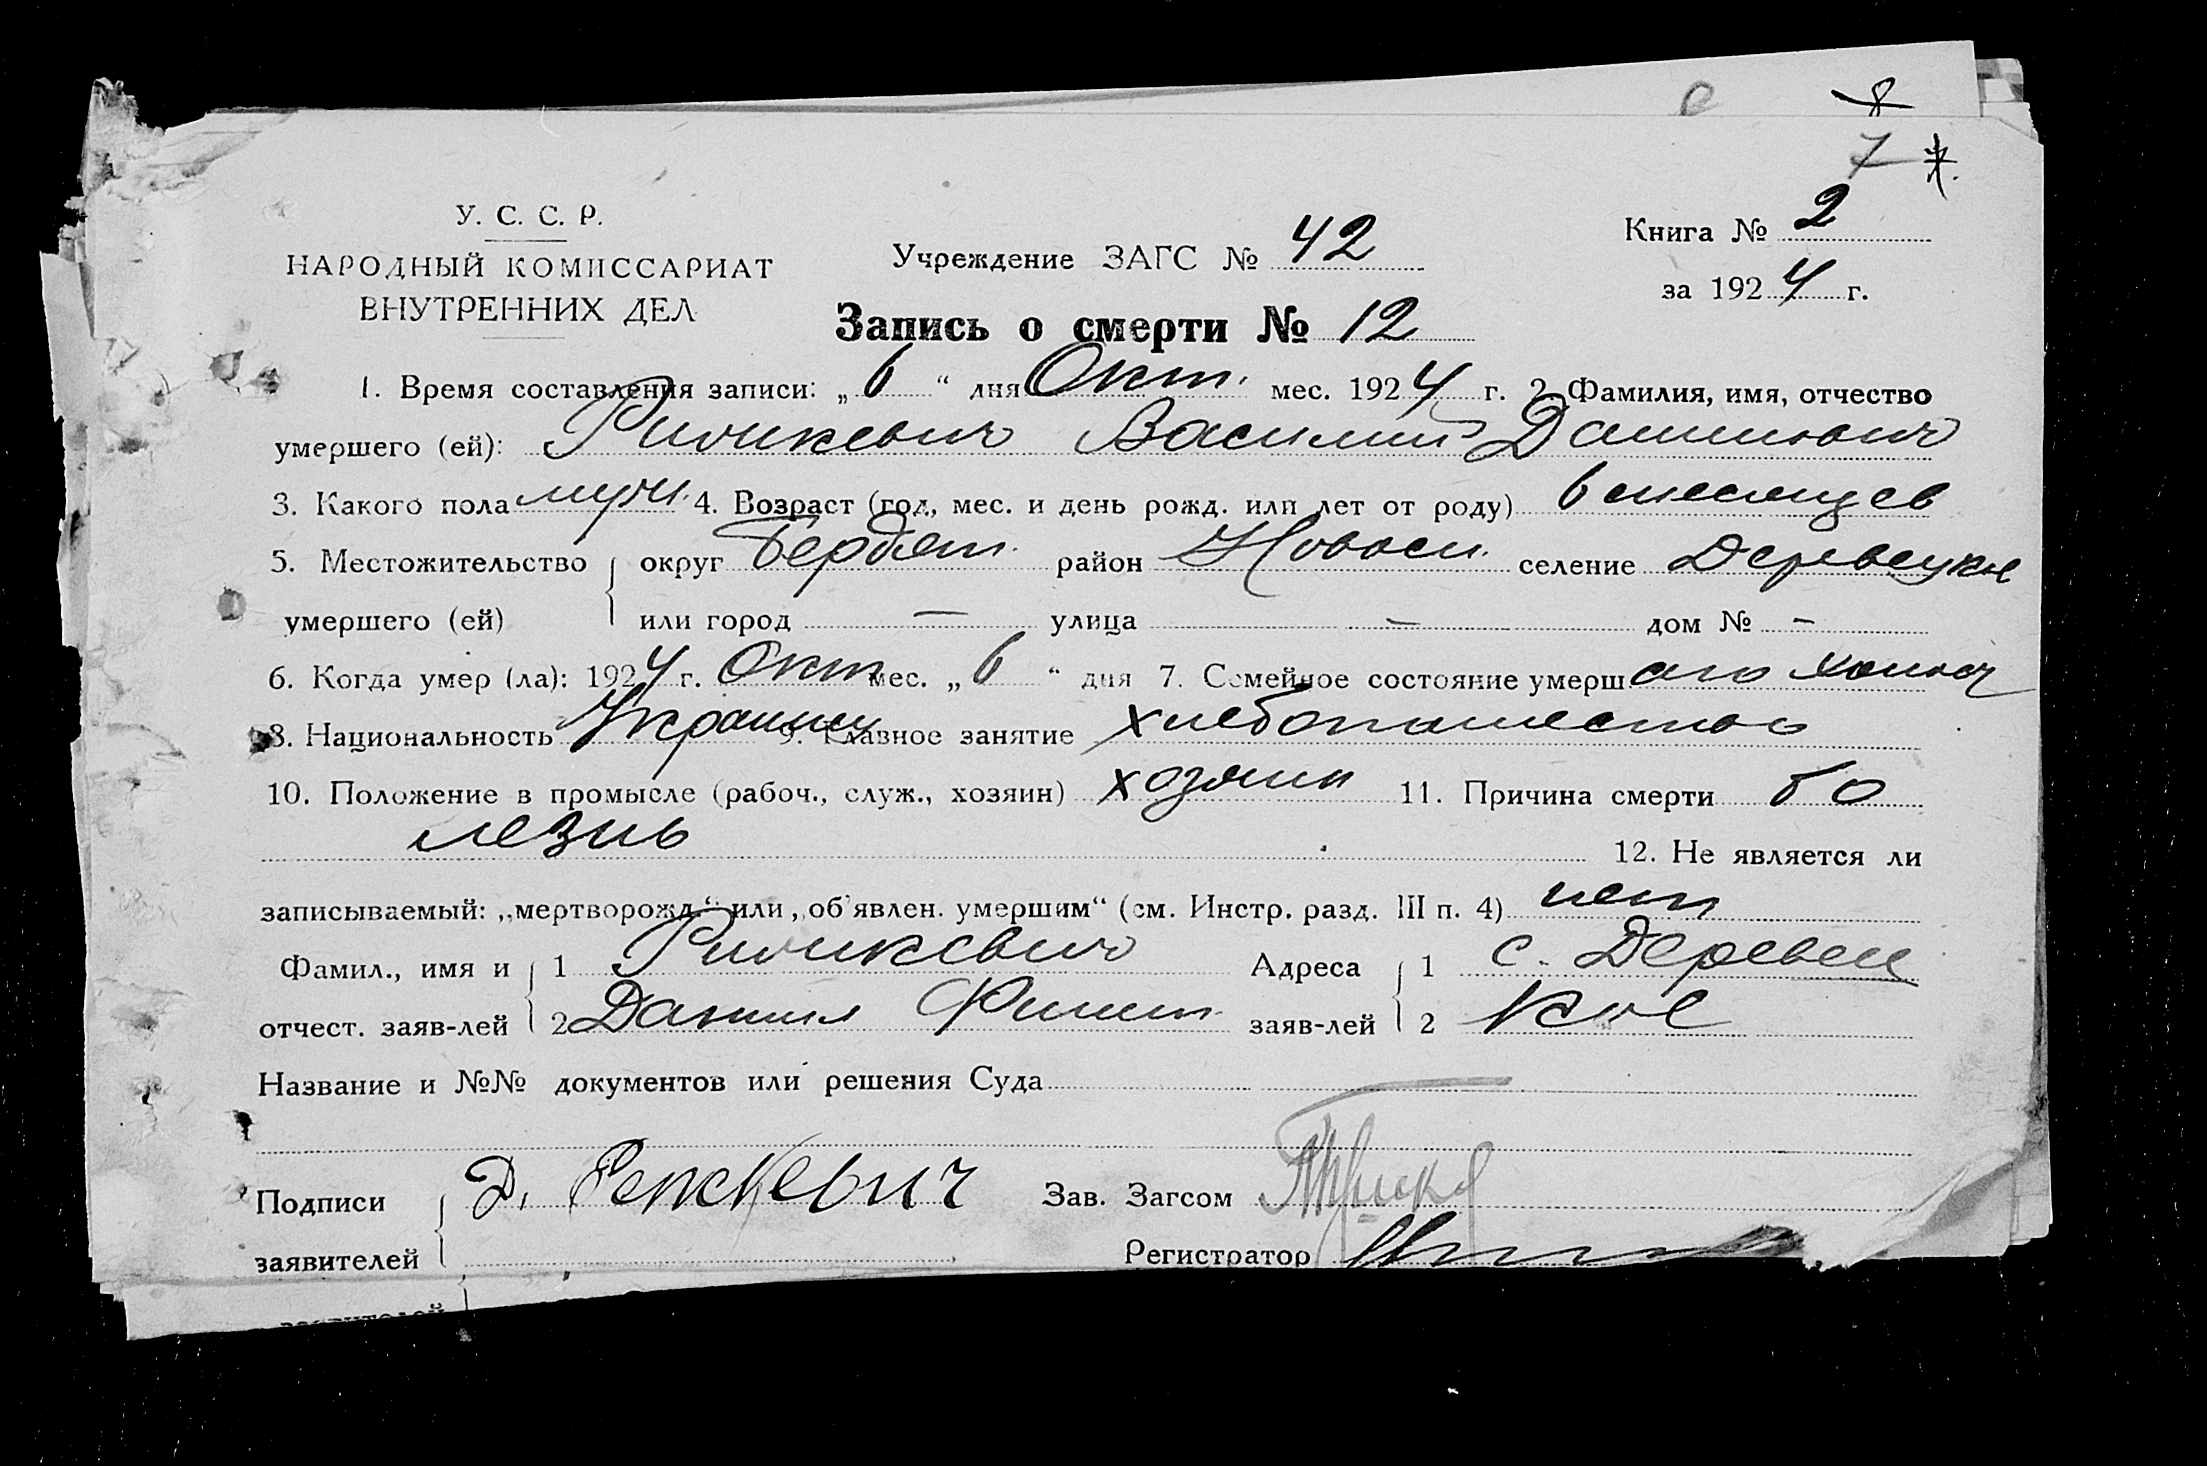 7
У. С. С. Р.
НАРОДНЫЙ КОМИССАРИАТ
ВНУТРЕННИХ ДЕЛ
Учреждение ЗАГС № 42
Книга № 2
за 1924 г.
Запись о смерти № 12
1. Время составления записи: „6“ дня Окт. мес. 1924 г. 2. Фамилия, имя, отчество
умершего (ей): Василий Данилович
3. Какого пола муж. 4. Возраст (год, мес. и день рожд. или лет от роду) 6 месяцев
5. Местожительство округ Бердян. район Новосп. селение Деревецкое
умершего (ей) или город — улица — дом № –
6. Когда умер (ла): 1924 г. Окт. мес. „6“ дня 7. Семейное состояние умерш.
8. Национальность Украинец 9. Главное занятие хлебопашество
10. Положение в промысле (рабоч., служ., хозяин) хозяин 11. Причина смерти бо
лезнь 12. Не является ли
записываемый: „мертворожд.“ или „об'явлен. умершим“ (см. Инстр. разд. III п. 4) нет
Фамил., имя и 1 Адреса 1 с. Деревец
отчест. заяв-лей 2 Данил Филип. заяв-лей 2 кое
Название и №№ документов или решения Суда
Подписи Д. Зав. Загсом
заявителей Регистратор